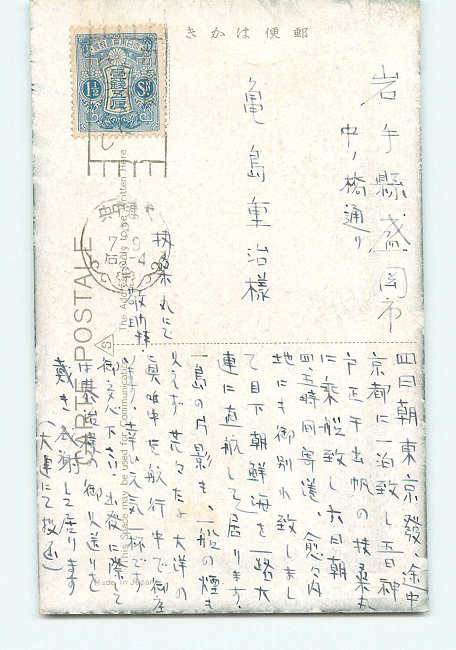 郵便はかき
岩手縣盛岡市
中ノ橋通り
亀島重治様
扶桑丸にて
CARTE POSTALE
The Address only to be written Here
This Space may be used for Communication
Made in Japan
1½ Sn
四日朝東京發、途中
京都に一泊致し五日神
戸正午出帆の扶桑丸
に乗船致し六日朝
四、五時间寄港、愈々内
地にも御別れ致しまし
て目下朝鮮海を一路大
連に直航して居ります.
一島の片影も、一船の煙も
見えず荒々たる大洋の
真唯中を航行中で御座
います、幸い元気一杯です
御安心下さい出發に際して
は基治様の御見送りを
戴き感謝して居ります
(大連にて投函)